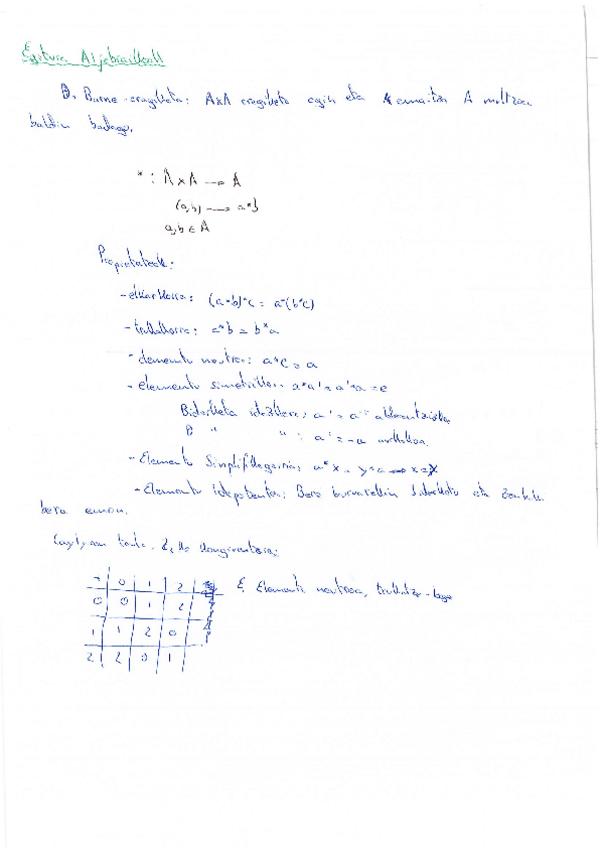 Egitura Aljebraikoak
D. Barne-eragiketa: AxA eragiketa egin eta emaitza A multzoan
baldin badago.
* : A x A → A
(a,b) → a*b
a,b ∈ A
Propietateak:
- elkarkorra: (a*b)*c = a*(b*c)
- trukakorra: a*b = b*a
- elementu neutroa: a*e = a
- elementu simetrikoa: a*a' = a'*a = e
Biderketa a' = a⁻¹ alderantzizkoa
" " : a' = -a
- Elementu Sinplifikagarria: a*x = y*a x = y
- Elementu Idepotentea: Bere buruarekin eta
bera eman.
taula. Z,
+ 0 1 2
0 0 1 2
1 1 2 0
2 2 0 1
E. Elementu neutroa, trukatze-legea